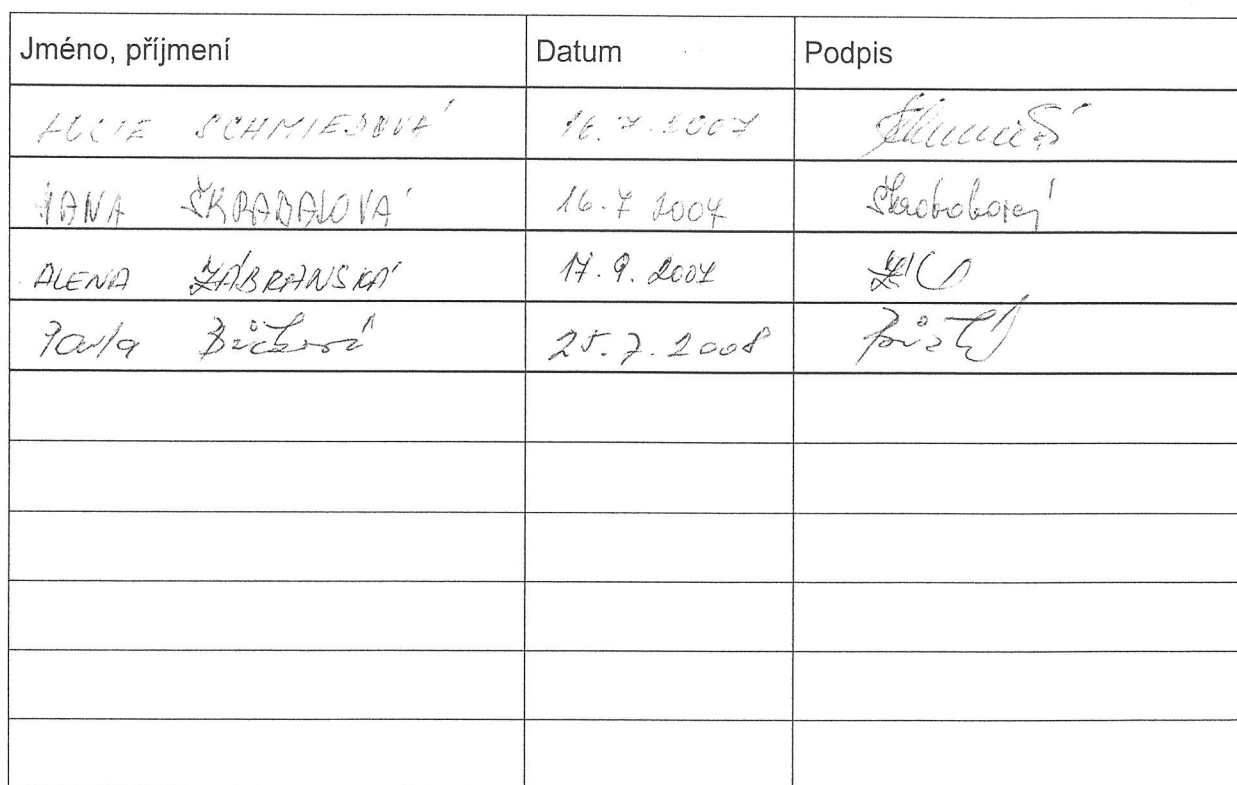 Jméno, příjmení Datum Podpis
LUCIE SCHMIEDOVÁ 16.7.2007
JANA ŠKRABALOVÁ 16.7 2007
ALENA ZÁBRANSKÁ 17.9.2007
Pavla 25.7.2008